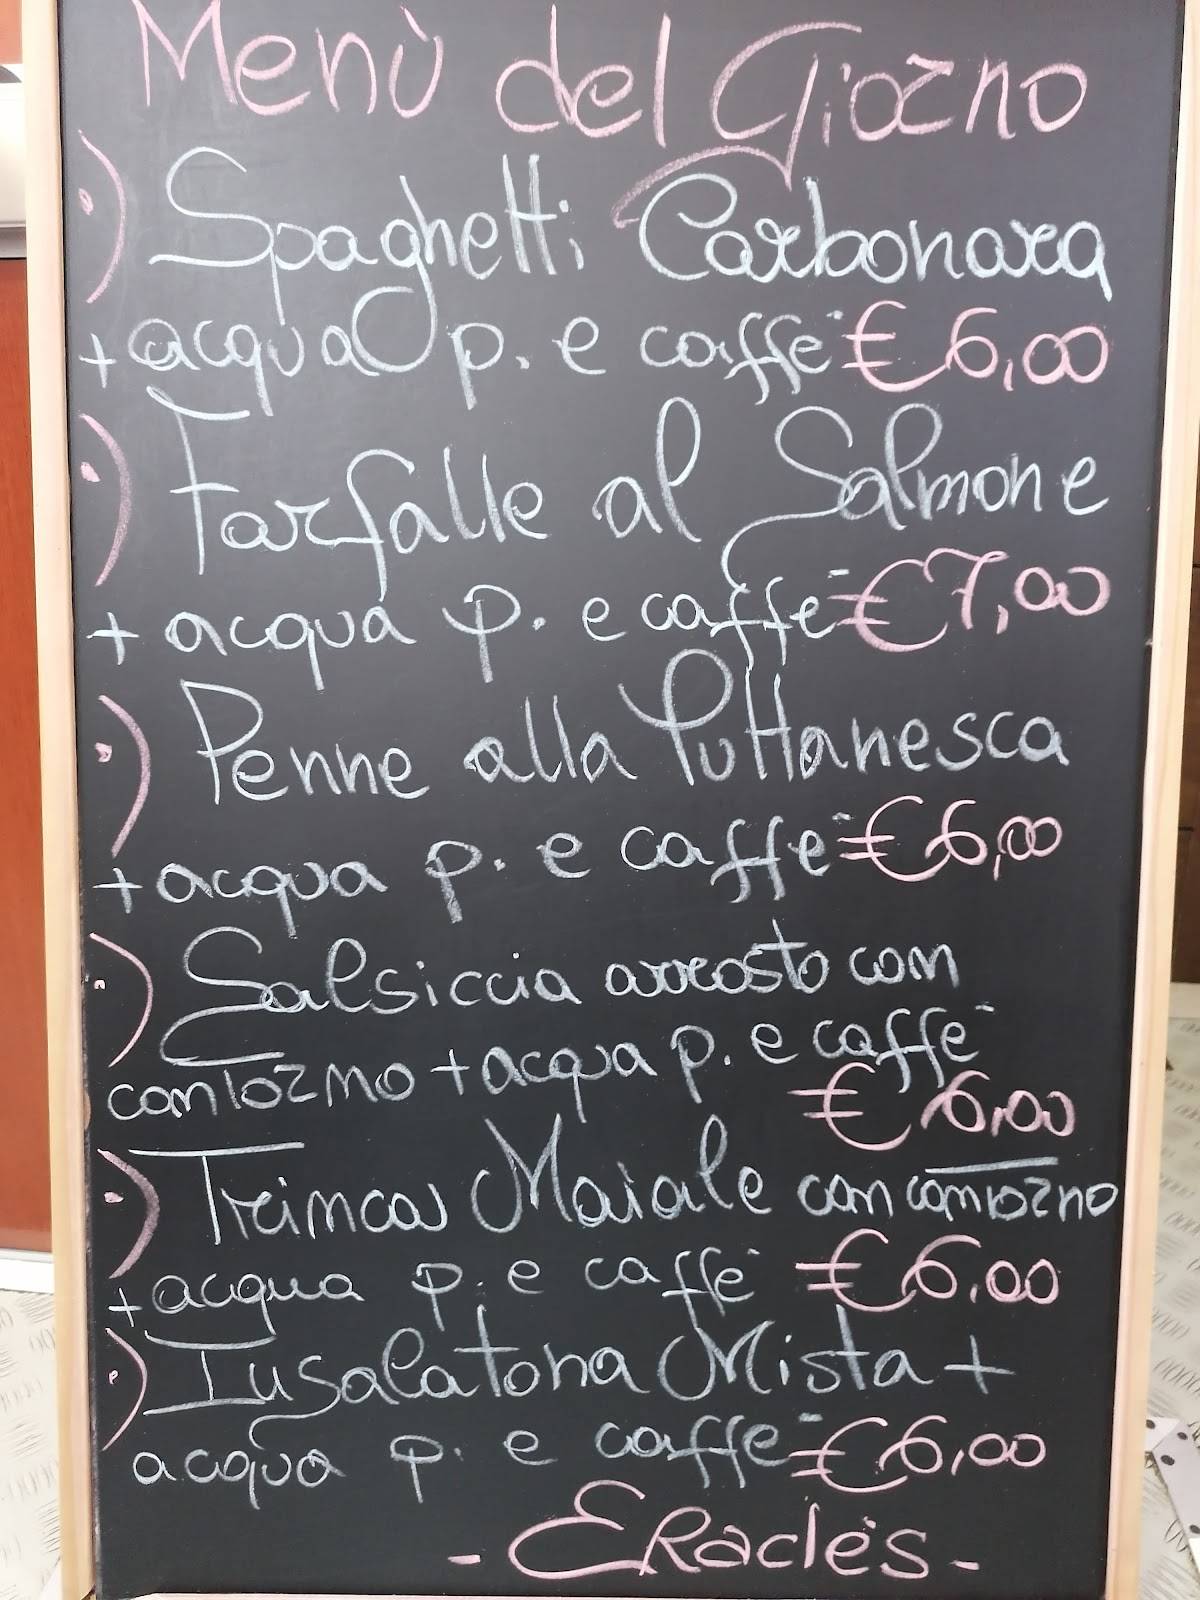 Menù del Giorno
Spaghetti Carbonara
+ acqua p. e caffè € 6,00
Farfalle al Salmone
+ acqua p. e caffè € 7,00
Penne alla Puttanesca
+ acqua p. e caffè € 6,00
Salsiccia arrosto con
contorno + acqua p. e caffè
€ 6,00
Trinca Maiale con contorno
+ acqua p. e caffè € 6,00
Insalatona Mista +
acqua p. e caffè € 6,00
- Eracles -